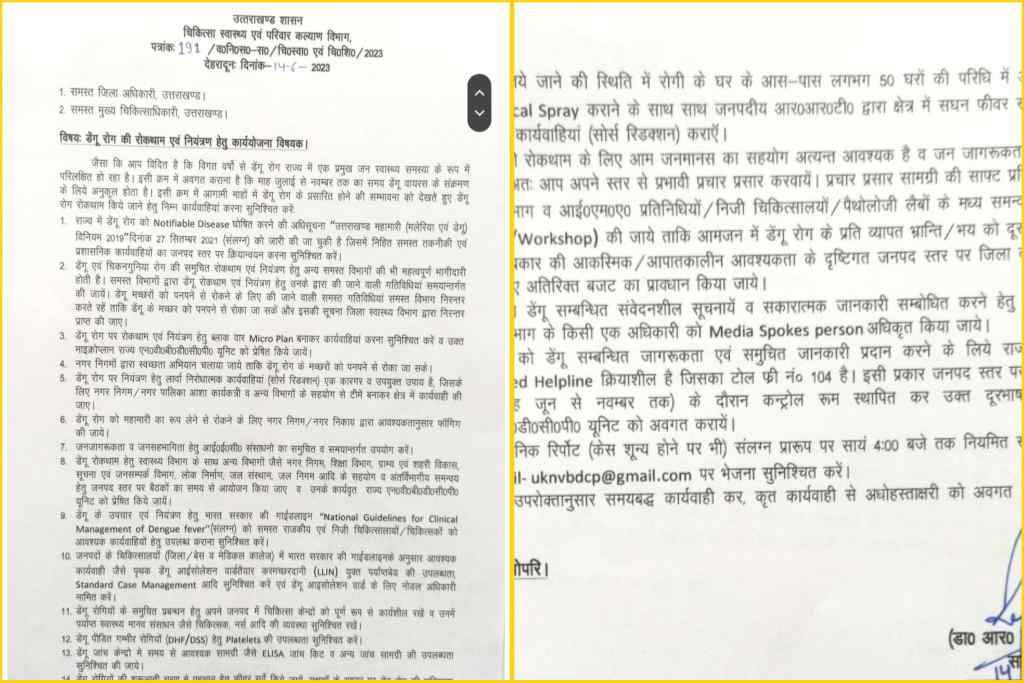 उत्तराखण्ड शासन
चिकित्सा स्वास्थ्य एवं परिवार कल्याण विभाग,
पत्रांक: 191 /व0नि0स0–स0/चि0स्वा0 एवं चि0शि0/2023
देहरादूनः दिनांक–14-6– 2023
1. समस्त जिला अधिकारी, उत्तराखण्ड।
2. समस्त मुख्य चिकित्साधिकारी, उत्तराखण्ड।
विषयः डेंगू रोग की रोकथाम एवं नियंत्रण हेतु कार्ययोजना विषयक।
जैसा कि आप विदित है कि विगत वर्षो से डेंगू रोग राज्य में एक प्रमुख जन स्वास्थ्य समस्या के रूप में
परिलक्षित हो रहा है। इसी क्रम में अवगत कराना है कि माह जुलाई से नवम्बर तक का समय डेंगू वायरस के संक्रमण
के लिये अनुकूल होता है। इसी क्रम में आगामी माहों में डेंगू रोग के प्रसारित होने की सम्भावना को देखते हुए डेंगू
रोग रोकथाम किये जाने हेतु निम्न कार्यवाहियां करना सुनिश्चित करे:
1. राज्य में डेंगू रोग को Notifiable Disease घोषित करने की अधिसूचना "उत्तराखण्ड महामारी (मलेरिया एवं डेगू)
विनियम 2019"दिनांक 27 सितम्बर 2021 (संलग्न) को जारी की जा चुकी है जिसमें निहित समस्त तकनीकी एवं
प्रशासनिक कार्यवाहियों का जनपद स्तर पर क्रियान्वयन करना सुनिश्चित करें।
2. डेंगू एवं चिकनगुनिया रोग की समुचित रोकथाम एवं नियंत्रण हेतु अन्य समस्त विभागों की भी महत्वपूर्ण भागीदारी
होती है। समस्त विभागों द्वारा डेंगू रोकथाम एवं नियंत्रण हेतु उनके द्वारा की जाने वाली गतिविधियां समयान्तर्गत
की जायें। डेंगू मच्छरों को पनपने से रोकने के लिए की जाने वाली समस्त गतिविधियां समस्त विभाग निरन्तर
करते रहें ताकि डेंगू के मच्छर को पनपने से रोका जा सकें और इसकी सूचना जिला स्वास्थ्य विभाग द्वारा निरन्तर
प्राप्त की जाए।
3. डेंगू रोग पर रोकथाम एवं नियंत्रण हेतु ब्लाक वार Micro Plan बनाकर कार्यवाहियां करना सुनिश्चित करें व उक्त
माइक्रोप्लान राज्य एन0वी0बी0डी0सी0पी0 यूनिट को प्रेषित किये जायें।
4. नगर निगमों द्वारा स्वच्छता अभियान चलाया जाये ताकि डेंगू रोग के मच्छरों को पनपने से रोका जा सके।
5. डेंगू रोग पर नियंत्रण हेतु लार्वा निरोधात्मक कार्यवाहियां (सोर्स रिडक्शन) एक कारगर व उपयुक्त उपाय है, जिसके
लिए नगर निगम/नगर पालिका आशा कार्यकत्री व अन्य विभागों के सहयोग से टीमे बनाकर क्षेत्र में कार्यवाही की
जाए।
6. डेंगू रोग को महामारी का रूप लेने से रोकने के लिए नगर निगम/नगर निकाय द्वारा आवश्यकतानुसार फॉगिंग
की जाये।
7. जनजागरूकता व जनसहभागिता हेतु आई0ई0सी0 संसाधनो का समुचित व समयान्तर्गत उपयोग करें।
8. डेंगू रोकथाम हेतु स्वास्थ्य विभाग के साथ अन्य विभागों जैसे नगर निगम, शिक्षा विभाग, ग्राम्य एवं शहरी विकास,
सूचना एवं जनसम्पर्क विभाग, लोक निर्माण, जल संस्थान, जल निगम आदि के सहयोग व अंतर्विभागीय समन्वय
हेतु जनपद स्तर पर बैठकों का समय से आयोजन किया जाए व उनके कार्यवृत राज्य एन0वी0बी0डी0सी0पी0
यूनिट को प्रेषित किये जायें।
9. डेंगू के उपचार एवं नियंत्रण हेतु भारत सरकार की गाईडलाइन "National Guidelines for Clinical
Management of Dengue fever"(संलग्न) को समस्त राजकीय एवं निजी चिकित्सालायों/चिकित्सकों को
आवश्यक कार्यवाहियों हेतु उपलब्ध कराना सुनिश्चित करें।
10. जनपदों के चिकित्सालायों (जिला/बेस व मेडिकल कालेज) में भारत सरकार की गाईडलाइनके अनुसार आवश्यक
कार्यवाही जैसे पृथक डेंगू आईसोलेशन वार्डतैयार करमच्छरदानी (LLIN) युक्त पर्याप्तबेड की उपलब्धता,
Standard Case Management आदि सुनिश्चित करें एवं डेंगू आइसोलेशन वार्ड के लिए नोडल अधिकारी
नामित करें।
11. डेंगू रोगियों के समुचित प्रबन्धन हेतु अपने जनपद में चिकित्सा केन्द्रों को पूर्ण रूप से कार्यशील रखें व उनमें
पर्याप्त स्वास्थ्य मानव संसाधन जैसे चिकित्सक, नर्स आदि की व्यवस्था सुनिश्चित रखें।
12. डेंगू पीडित गम्भीर रोगियों (DHF/DSS) हेतु Platelets की उपलब्धता सुनिश्चित करें।
13. डेंगू जांच केन्द्रो मे समय से आवश्यक सामग्री जैसे ELISA जांच किट व अन्य जांच सामग्री की उपलब्धता
सुनिश्चित की जाये।
ये जाने की स्थिति में रोगी के घर के आस–पास लगभग 50 घरों की परिधि में
cal Spray कराने के साथ साथ जनपदीय आर0आर0टी0 द्वारा क्षेत्र में सघन फीवर
कार्यवाहियां (सोर्स रिडक्शन) कराएँ।
रोकथाम के लिए आम जनमानस का सहयोग अत्यन्त आवश्यक है व जन जागरूकत
अतः आप अपने स्तर से प्रभावी प्रचार प्रसार करवायें। प्रचार प्रसार सामग्री की साफ्ट प्र
भाग व आई0एम0ए0 प्रतिनिधियों/निजी चिकित्सालायों/पैथोलोजी लैबों के मध्य समन्व
/Workshop) की जाये ताकि आमजन में डेंगू रोग के प्रति व्यापत भ्रान्ति/भय को दूर
प्रकार की आकस्मिक/आपातकालीन आवश्यकता के दृष्टिगत जनपद स्तर पर जिला
अतिरिक्त बजट का प्रावधान किया जाये।
डेंगू सम्बन्धित संवेदनशील सूचनायें व सकारात्मक जानकारी सम्बोधित करने हेतु
भाग के किसी एक अधिकारी को Media Spokes person अधिकृत किया जाये।
को डेंगू सम्बन्धित जागरूकता एवं समुचित जानकारी प्रदान करने के लिये राज
ed Helpline क्रियाशील है जिसका टोल फ्री नं० 104 है। इसी प्रकार जनपद स्तर प
ह जून से नवम्बर तक) के दौरान कन्ट्रोल रूम स्थापित कर उक्त दूरभाष
0डी0सी0पी0 यूनिट को अवगत करायें।
निक रिर्पोट (केस शून्य होने पर भी) संलग्न प्रारूप पर सायं 4:00 बजे तक नियमित
il- uknvbdcp@gmail.com पर भेजना सुनिश्चित करें।
उपरोक्तानुसार समयबद्ध कार्यवाही कर, कृत कार्यवाही से अधोहस्ताक्षरी को अवगत
ोपरि।
(डा0 आर0
14